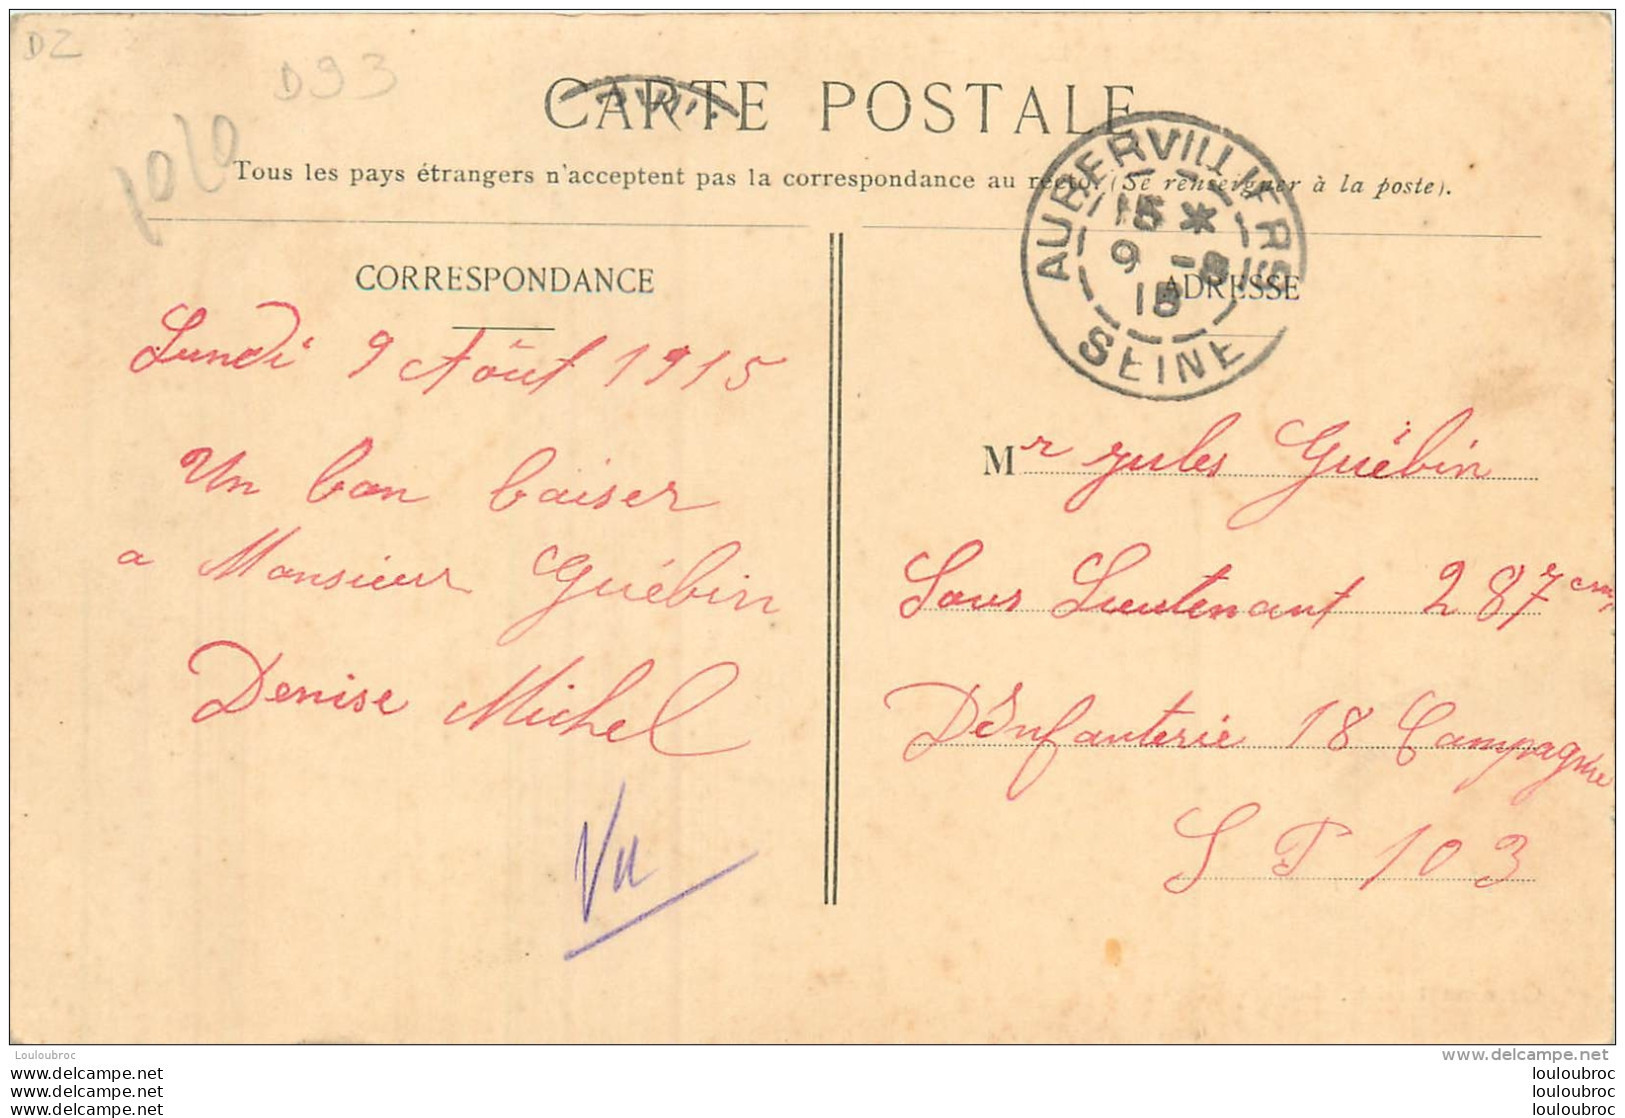 DZ
D93
1010
CARTE POSTALE
Tous les pays étrangers n'acceptent pas la correspondance au recto. (Se renseigner à la poste).
AUBERVILLIERS
15 *
9 - 8
15
SEINE
CORRESPONDANCE
Lundi 9 Aôut 1915
Un bon baiser
a Monsieur Guébin
Denise Michel
Vu
ADRESSE
Mr Jules Guébin
Sous Lieutenant 287em
D'Infanterie 18 Compagnie
S P 103
Louloubroc
www.delcampe.net
louloubroc
louloubroc
louloubroc
www.delcampe.net
www.delcampe.net
www.delcampe.net
louloubroc
louloubroc
louloubroc